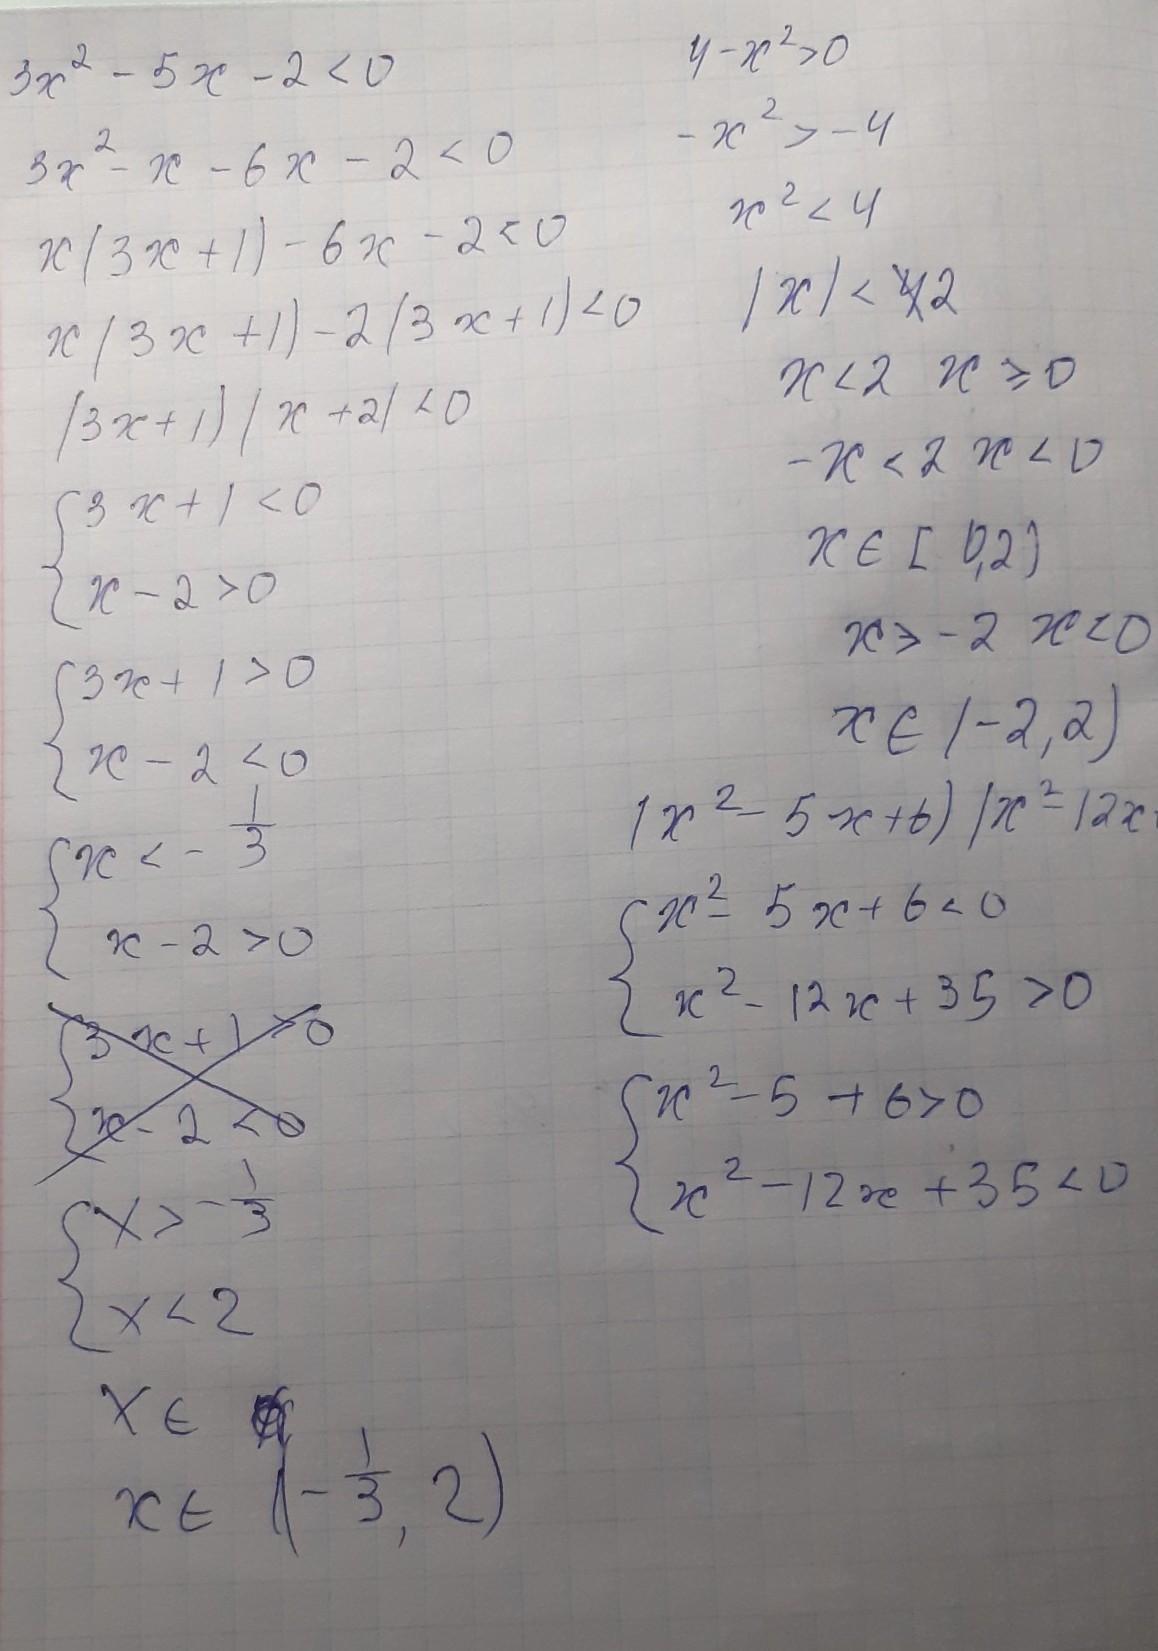 3x² - 5x - 2 < 0
3x² - x - 6x - 2 < 0
x(3x+1) - 6x - 2 < 0
x(3x+1) - 2(3x+1) < 0
(3x+1)(x+2) < 0
{3x+1 < 0
x - 2 > 0
{3x+1 > 0
x - 2 < 0
{x < -1/3
x - 2 > 0
{3x+1 > 0
x - 2 < 0
{x > -1/3
x < 2
x ∈
x ∈ (-1/3, 2)
4 - x² > 0
-x² > -4
x² < 4
|x| < 2
x < 2 x ≥ 0
-x < 2 x < 0
x ∈ [0,2)
x > -2 x < 0
x ∈ (-2,2)
(x² - 5x+6)(x² - 12x
{x² - 5x + 6 < 0
x² - 12x + 35 > 0
{x² - 5 + 6 > 0
x² - 12x + 35 < 0